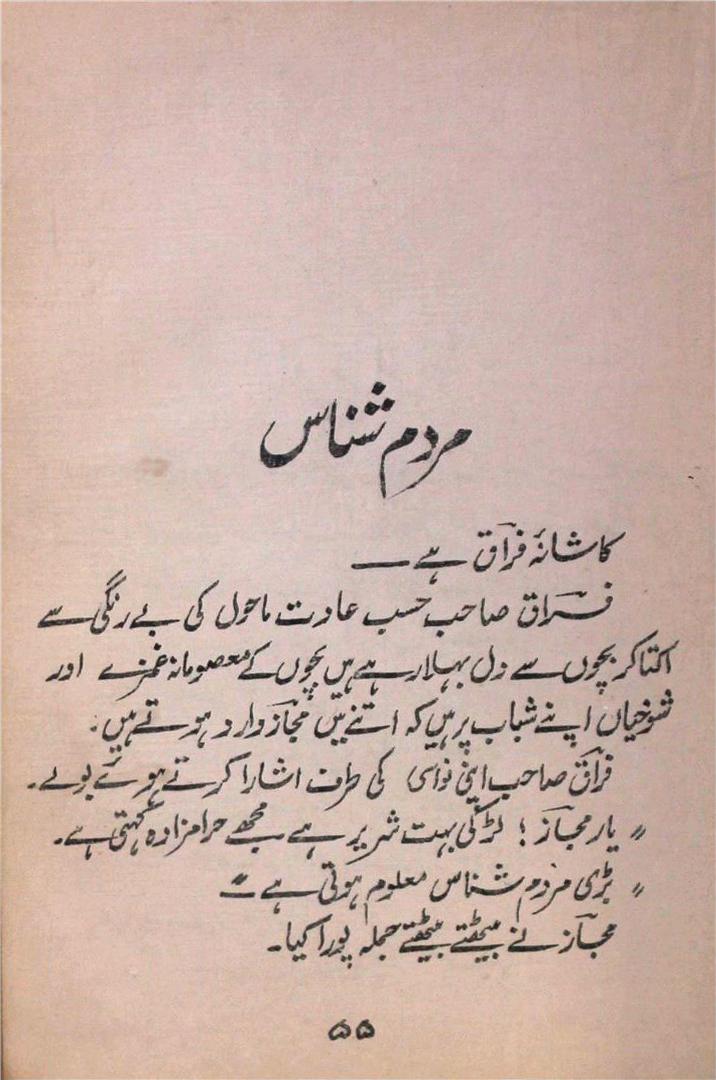 مردم شناس
کاشانۂ فراق ہے ــــ
فراق صاحب حسب عادت ماحول کی بے رنگی سے
اکتا کر بچوں سے دل بہلا رہے ہیں بچوں کے معصومانہ غمزے اور
شوخیاں اپنے شباب پر ہیں کہ اتنے میں مجاز وارد ہوتے ہیں۔
فراق صاحب اپنی نواسی کی طرف اشارا کرتے ہوئے بولے۔
" یار مجاز ! لڑکی بہت شریر ہے مجھے حرامزادہ کہتی ہے۔
" بڑی مردم شناس معلوم ہوتی ہے ــ"
مجاز نے بیٹھتے بیٹھتے جملہ پورا کیا۔
۵۵